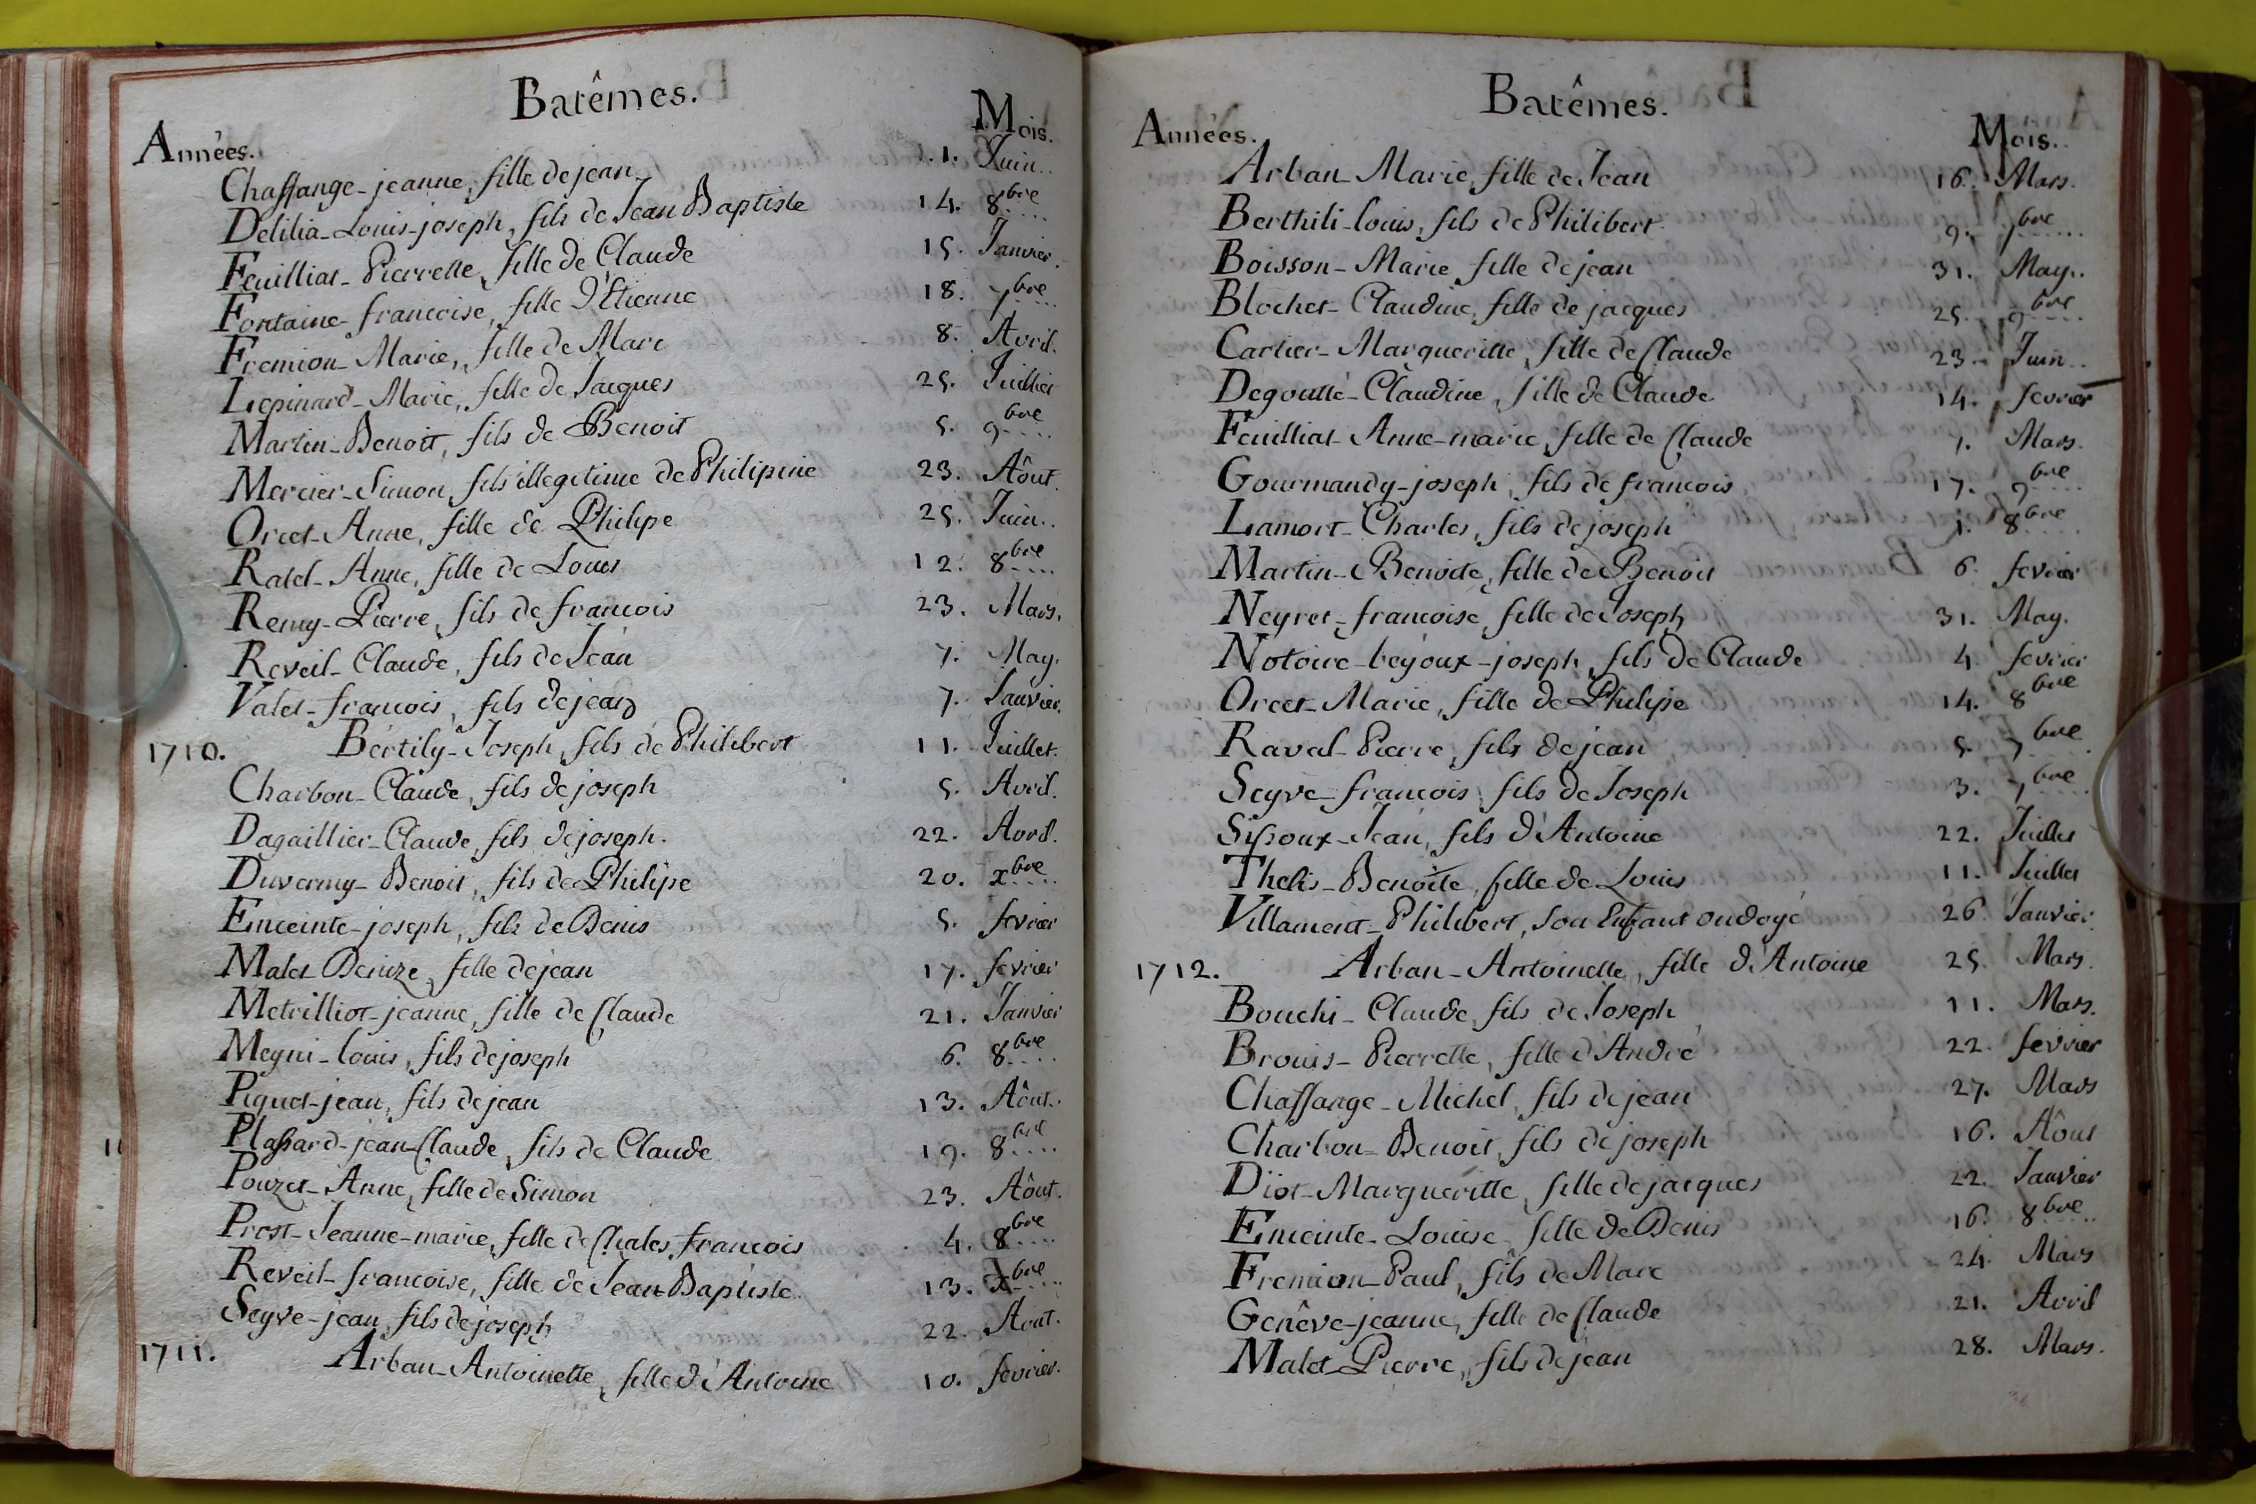 Batêmes.
Années. Mois.
Chassange-jeanne, fille de jean 1. Juin..
Delilia-Louis-joseph, fils de Jean Baptiste 14. 8bre....
Feuilliat-Pierrette, fille de Claude 15. Janvier.
Fontaine-francoise, fille d'Etienne 18. 7bre....
Fremion-Marie, fille de Marc 8. Avril.
Lepinard-Marie, fille de Jacques 25. Juillier
Martin-Benoit, fils de Benoit 5. 9bre....
Mercier-Simon, fils illegitime de Philipine 23. Aôut.
Orcet-Anne, fille de Philipe 25. Juin..
Ratel-Anne, fille de Louis 12. 8bre....
Remy-Pierre, fils de francois 23. Mars.
Reveil-Claude, fils de Jean 7. May.
Valet-francois, fils de jean 7. Janvier.
1710. Bertily-Joseph, fils de Philibert 11. Juillet.
Charbon-Claude, fils de joseph 5. Avril.
Dagaillier-Claude, fils de joseph. 22. Avril.
Duvermy-Benoit, fils de Philipe 20. xbre....
Enceinte-joseph, fils de Denis 5. fevrier
Malet-Denize, fille de jean 17. fevrier
Metrilliot-jeanne, fille de Claude 21. Janvier
Megni-louis, fils de joseph 6. 8bre....
Piquet-jean, fils de jean 13. Aôut..
Plassard-jean-Claude, fils de Claude 19. 8bre....
Pouzet-Anne, fille de Simon 23. Aôut.
Prost-Jeanne-marie, fille de Chales francois 4. 8bre....
Reveil-francoise, fille de Jean Baptiste. 13. xbre....
Seyve-jean, fils de joseph 22. Aout.
1711. Arban-Antoinette, fille d'Antoine 10. fevrier.
Batêmes.
Années. Mois..
Arban-Marie, fille de Jean 16. Mars.
Berthili-louis, fils de Philibert. 9. 7bre....
Boisson-Marie, fille de jean 31. May..
Blochet-Claudine, fille de jacques 25. 9bre....
Cartier-Marqueritte, fille de Claude 23. Juin..
Degoutté-Claudine, fille de Claude 14. fevrier
Feuilliat-Anne-marie, fille de Claude 1. Mars.
Gourmandy-joseph, fils de francois 17. 9bre....
Lamort-Charles, fils de joseph 1. 8bre....
Martin-Benoite, fille de Benoit 6. fevrier
Neyret-francoise, fille de Joseph 31. May.
Notoire-bejoux-joseph, fils de Claude 4. fevrier
Orcet-Marie, fille de Philipe 14. 8bre
Raval-Pierre, fils de jean 5. 7bre.
Seyve-francois, fils de Joseph 3. 7bre....
Sissoux-Jean, fils d'Antoine 22. Juillet
Thelis-Benoite, fille de Louis 11. Juillet
Villament-Philibert, son Enfant ondoyé 26. Janvier.
1712. Arban-Antoinette, fille d'Antoine 25. Mars.
Bouchi-Claude, fils de Joseph 11. Mars.
Brouis-Pierrette, fille d'André 22. fevrier
Chassange-Michel, fils de jean 27. Mars
Charbon-Benoit, fils de joseph 16. Aôut
Diot-Margueritte, fille de jacques 22. Janvier
Enceinte-Louise, fille de Denis 16. 8bre..
Fremion-Paul, fils de Marc 24. Mars
Genêve-jeanne, fille de Claude 21. Avril
Malet-Pierre, fils de jean 28. Mars.